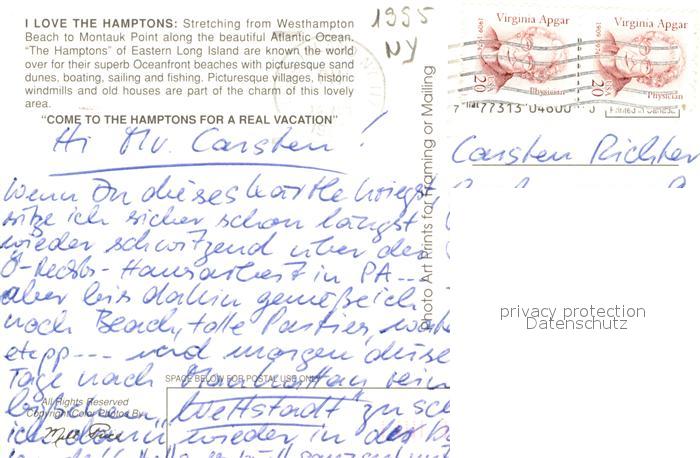 I LOVE THE HAMPTONS: Stretching from Westhampton
Beach to Montauk Point along the beautiful Atlantic Ocean.
"The Hamptons" of Eastern Long Island are known the world
over for their superb Oceanfront beaches with picturesque sand
dunes, boating, sailing and fishing. Picturesque villages, historic
windmills and old houses are part of the charm of this lovely
area.
"COME TO THE HAMPTONS FOR A REAL VACATION"
1995
NY
Virginia Apgar
1909 1974
USA
20
Physician
Virginia Apgar
1909 1974
USA
20
Physician
7 77313 04600
Photo Art Prints for Framing or Mailing
Hi Mr. Carsten!
Carsten Richter
Wenn Du dieses Kärtle kriegst,
sitze ich sicher schon längst
wieder schwitzend über der
Ö-Rechts-Hausarbeit in PA...
aber bis dahin genieße ich
noch Beach, tolle Parties,
etepp... und morgen
Tage nach Manhattan
bißchen Weltstadt zu
ich dann wieder in
SPACE BELOW FOR POSTAL USE ONLY
All Rights Reserved
Copyright Color Photos By
privacy protection
Datenschutz